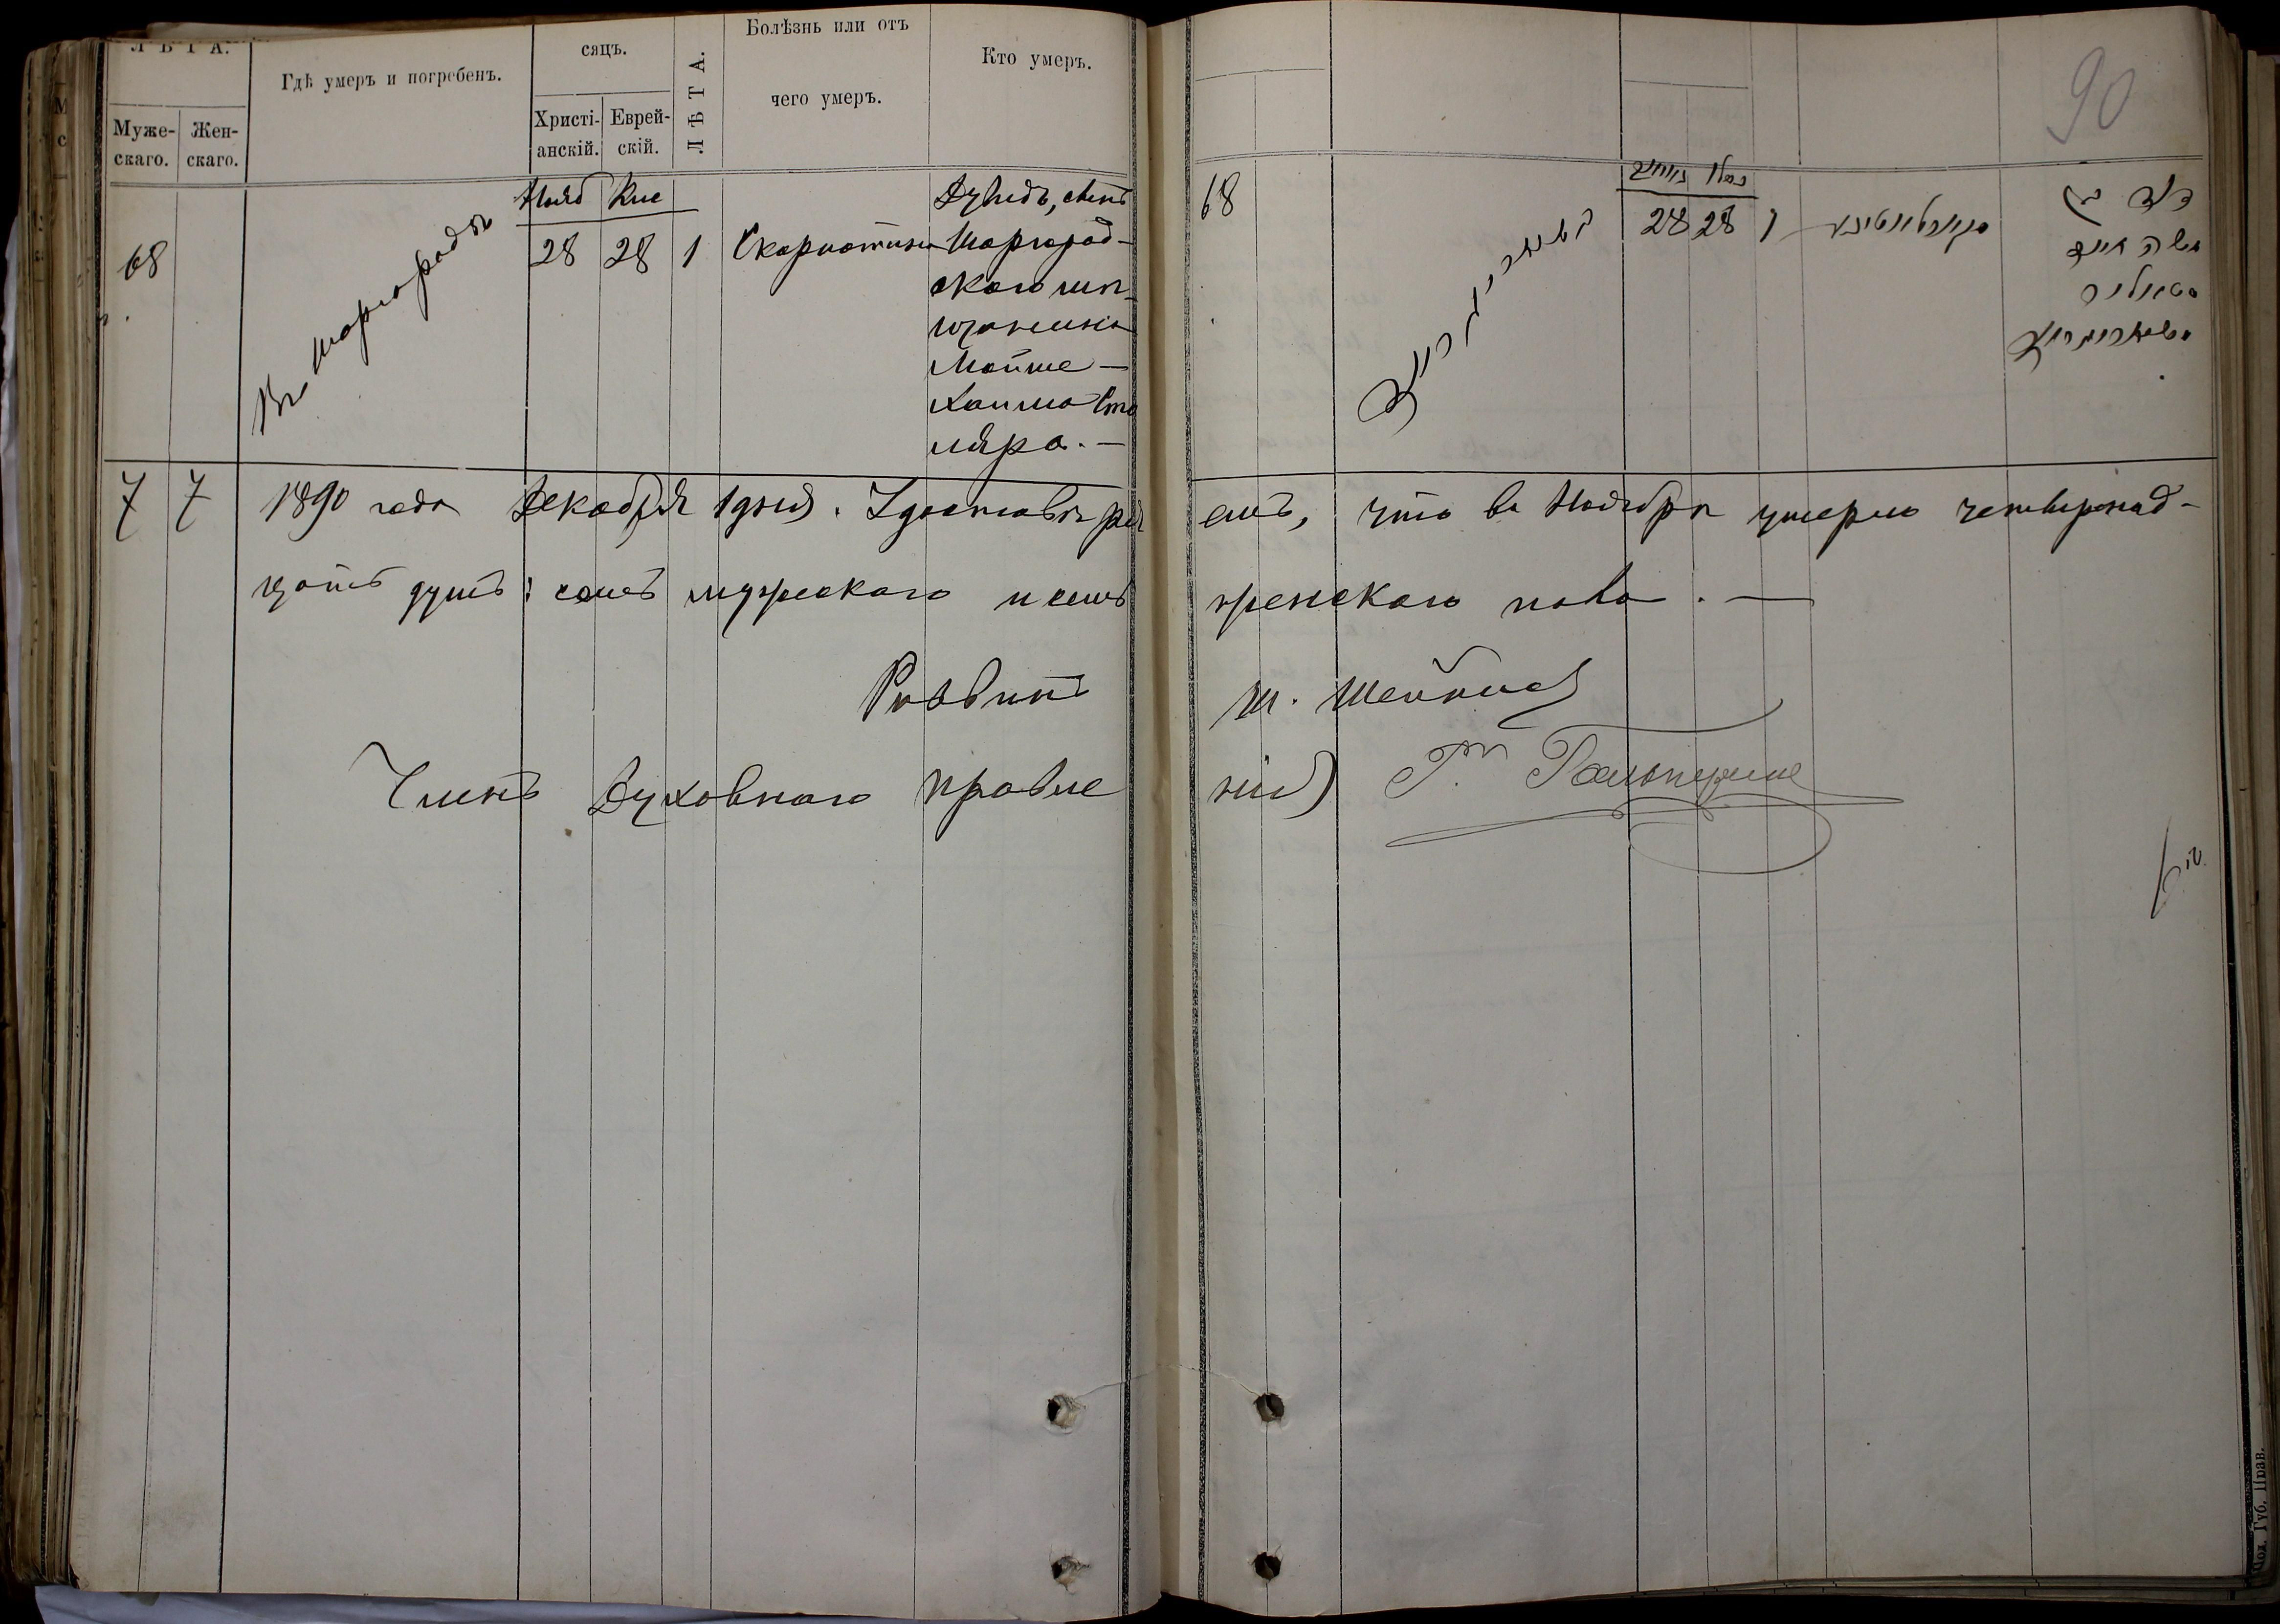 Л Ѣ Т А.
Муже-
скаго.
Жен-
скаго.
Гдѣ умеръ и погребенъ.
сяцъ.
Христі-
анскій.
Еврей-
скій.
Л Ѣ Т А.
Болѣзнь или отъ
чего умеръ.
Кто умеръ.
68
Въ Шаргородѣ
Нояб
28
Кис
28
1
Скарлатина
Дувидъ, сынъ
Шаргород-
скаго мѣ-
щанина
Мойше-
Хаима Сто
ляра. —
90
68
28
28
1
משה חיים
7 7 1890 года Декабря 1 дня. Удостовѣря
емъ, что въ Ноябрѣ умерло четырнад-
цать душъ: семь мужескаго и семь
женскаго пола. —
Раввинъ
Ш.
Членъ Духовнаго правле
нія Гальперинъ
Под. Губ. Прав.